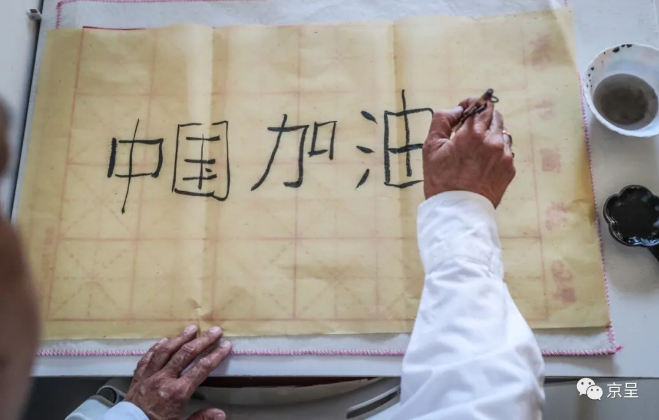 中国加油
京呈